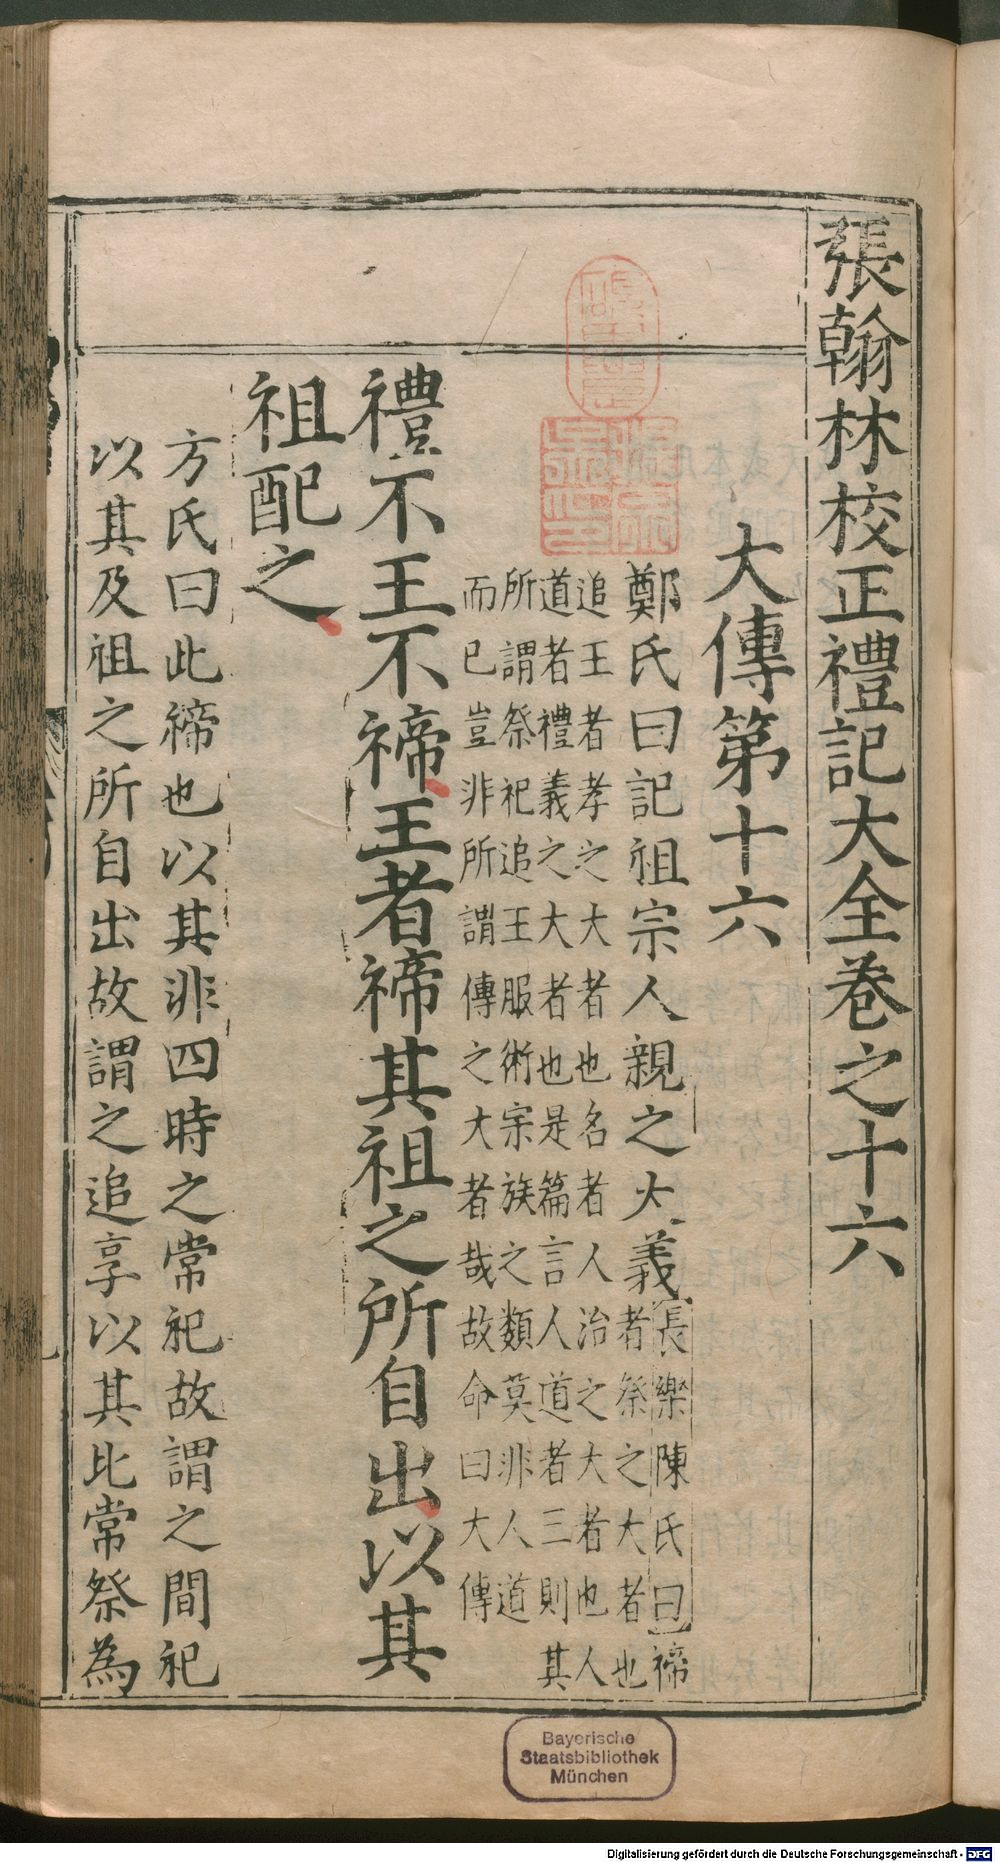 張翰林校正禮記大全卷之十六
大傳第十六
鄭氏曰記祖宗人親之大義長樂陳氏曰禘
者祭之大者也
追王者孝之大者也名者人治之大者也人
道者禮義之大者也是篇言人道者三則其
所謂祭祀追王服術宗族之類莫非人道
而已豈非所謂傳之大者哉故命曰大傳
禮不王不禘王者禘其祖之所自出以其
祖配之
方氏曰此禘也以其非四時之常祀故謂之間祀
以其及祖之所自出故謂之追享以其比常祭為
Bayerische
Staatsbibliothek
München
Digitalisierung gefördert durch die Deutsche Forschungsgemeinschaft - DFG